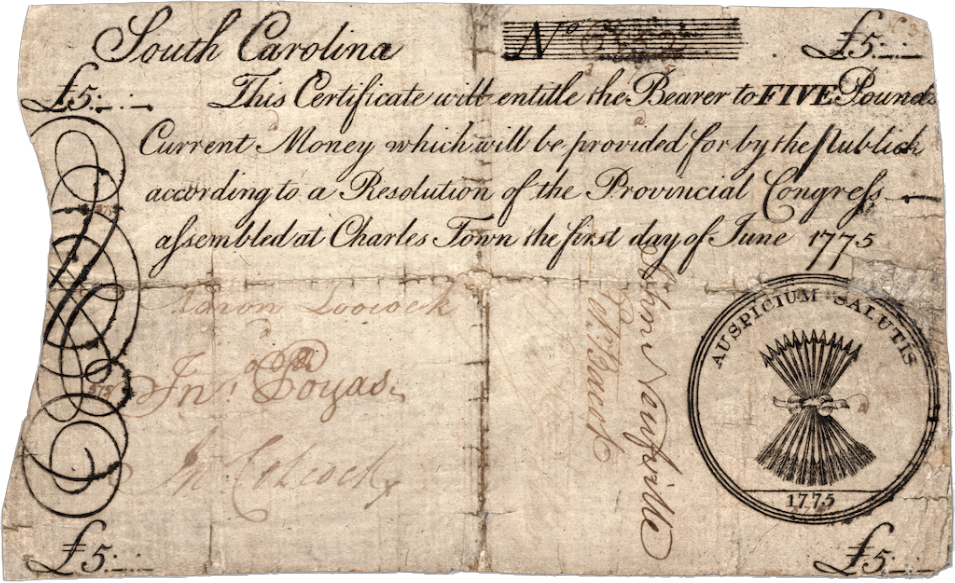 South Carolina
No
£5:
£5:
This Certificate will entitle the Bearer to FIVE Pounds
Current Money which will be provided for by the Publick
according to a Resolution of the Provincial Congreſs
aſsembled at Charles Town the first day of June 1775
Aaron Loocock
Jno. Poyas
John Neufville
AUSPICIUM SALUTIS
1775
£5:
£5: